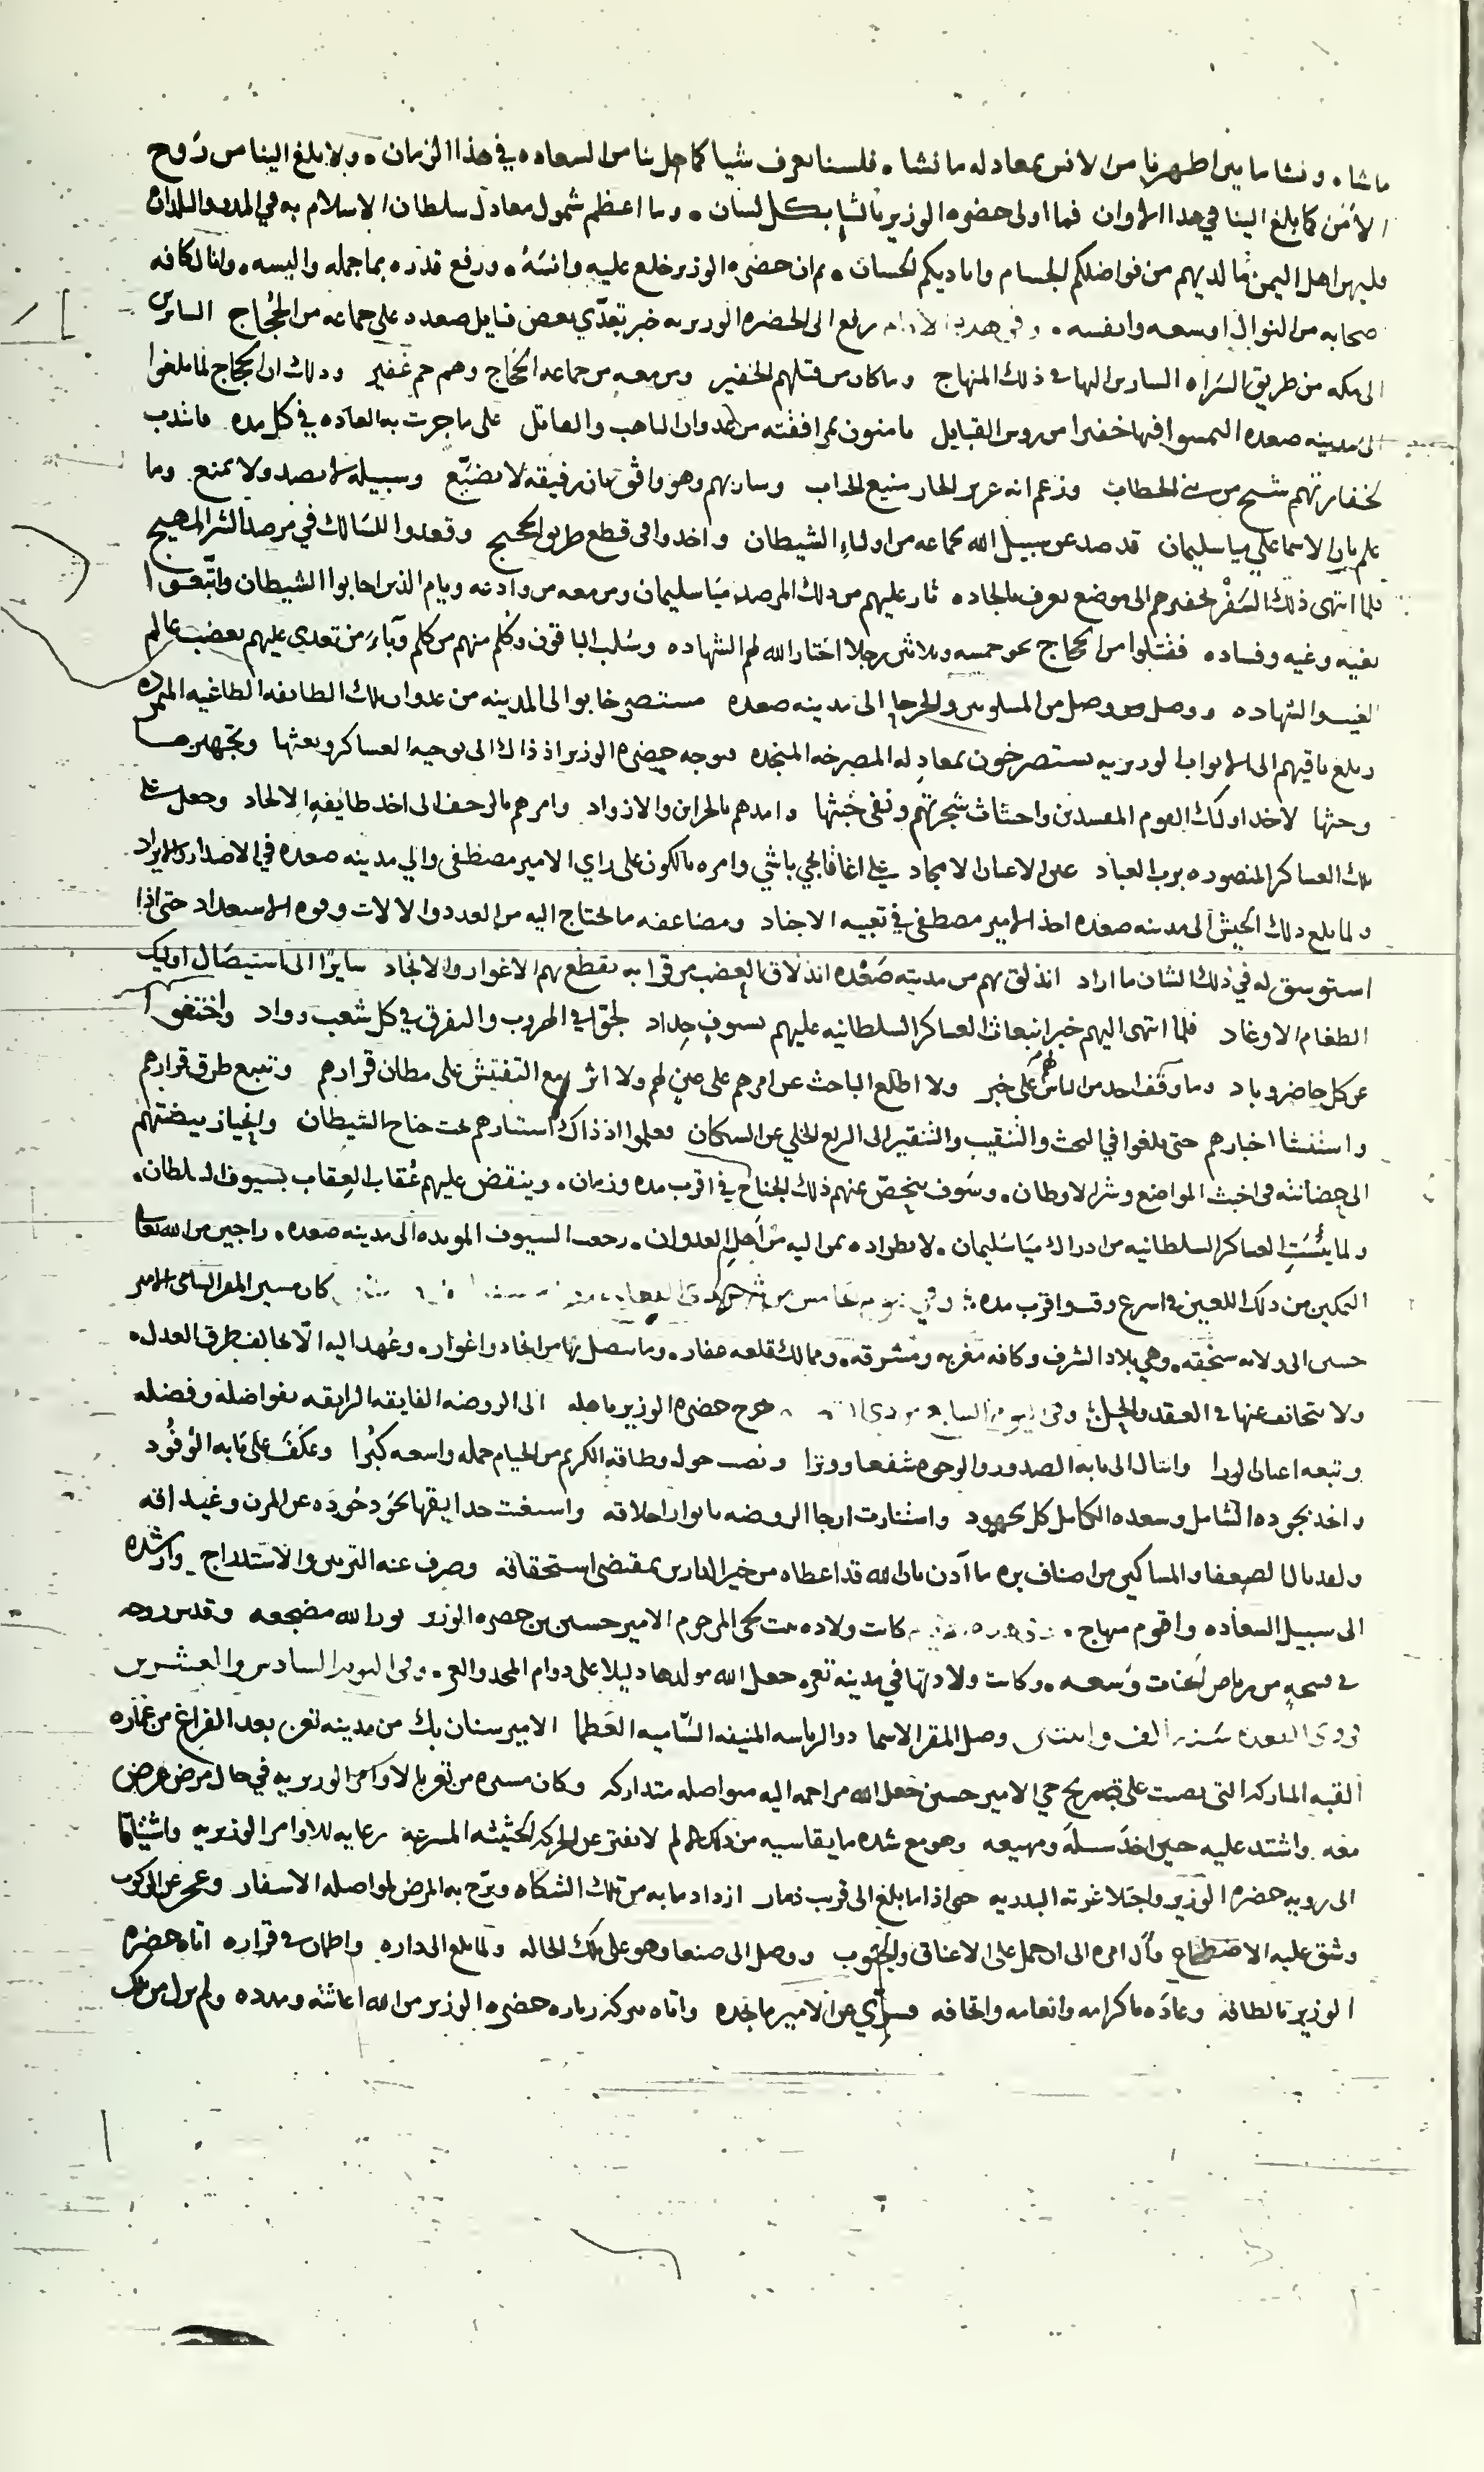 ما شاء ونشا ما بين اظهرنا من الانس بمعادله ما نشا فلسنا نعرف شيا كما حل بنا من السعاده في هذا الزمان ولا بلغ الينا من روح
الامن كما بلغ الينا في هذا الاوان فما اولى حضره الوزير بالثنا بكل لسان وما اعظم شمول معادل سلطان الاسلام به في المدن والبلدان
فليهن اهل اليمن ما لديهم من فواضلكم الجسام واياديكم الحسان ثم ان حضره الوزير خلع عليه وانسه ورفع قدره بما جمله والبسه وانال كافه
صحابه من النوال اوسعه وانفسه وفي هذه الايام رفع الى الحضره الوزيريه خبر تعدّي بعض قبايل صعده على جماعه من الحُجاج السايرين
الى مكه من طريق السراه السايرين اليها في ذلك المنهاج وما كان من قتلهم الخفير ومن معه من جماعه الحجاج وهم جم غفير وذلك ان الحجاج لما بلغوا
الى مدينه صعده التمسوا فيها خفيرا من روس القبايل يامنون بمرافقته من عدوان الناهب والقاتل على ما جرت به العاده في كل مده فانتدب
لخفارتهم شيخ من بني الخطاب وزعم انه عزيز الجار منيع الجناب وسار بهم وهو واثق بان رفيقه لا يضيّع وسبيله لا يصد ولا يمنع وما
علم بان الاسماعيلي ميا سليمان قد صد عن سبيل الله بجماعه من اولياء الشيطان واخذوا في قطع طريق الحجيج وقعدوا للسالك في مرصد الشر المهيج
فلما انتهى ذلك السفْر بخفيرهم الى موضع يعرف بالجاده ثار عليهم من ذلك المرصد ميا سليمان ومن معه من وادعه ويام الذين اجابوا الشيطان واتّبعوا
بغيه وغيه وفساده فقتلوا من الحجاج نحو خمسه وثلاثين رجلا اختار الله لهم الشهاده وسُلب الباقون وكُلم منهم من كلم وباء من تعدى عليهم بغضب عالم
الغيب والشهاده ووصل من وصل من المسلوبين والجرحا الى مدينه صعده مستصرخا بوالي المدينه من عدوان تلك الطائفه الطاغيه المتمرده
وبلغ باقيهم الى الابواب الوزيريه يستصرخون بمعادله المصرخه المنجده فتوجه حضره الوزير اذ ذاك الى توجيه العساكر وبعثها وتجهيزها
وحثها لاخذ اولئك القوم المفسدين واجتثاث شجرتهم ونفي خبثها وامدهم بالخزاين والازواد وامرهم بالزحف الى اخذ طايفه الالحاد وجعل على
تلك العساكر المنصوره برب العباد عين الاعيان الامجاد علي اغا قابجي باشي وامره بالكون على راي الامير مصطفى والي مدينه صعده في الاصدار والايراد
ولما بلغ ذلك الجيش الى مدينه صعده اخذ الامير مصطفى في تعبيه الاجناد ومضاعفه ما يحتاج اليه من العدد والالات وقوه الاستعداد حتى اذا
استوسق له في ذلك الشان ما اراد انذلق بهم من مدينه صَعْده انذلاق العضب من قرابه يقطع بهم الاغوار والانجاد سايرًا الى استيصال اوليك
الطغام الاوغاد فلما انتهى اليهم خبر انبعاث العساكر السلطانيه عليهم بسيوفٍ حِداد لجّوا في الهروب والتفرق في كل شعب وواد واختفوا
عن كل حاضر وباد وما وقف احد من الناس لهم على خبر ولا اطّلع الباحث عن امرهم على عينٍ لهم ولا اثر مع التفتيش على مظان قرارهم وتتبع طرق فرارهم
واستنشا اخبارهم حتى بلغوا في البحث والتنقيب والتنقير الى الربع الخلي عن السكان فعلموا اذ ذاك استتارهم تحت جناح الشيطان وانحياز بيضتهم
الى حضانته في اخبث المواضع وشر الاوطان وسَوف يُحَصّ عنهم ذلك الجناح في اقرب مده وزمان وينقض عليهم عُقاب العِقاب بسيوف السلطان
ولما يئست العساكر السلطانيه من ادراك ميَا سُليمان لانطراده بمن اليه من اهل العدوان رجعت السيوف المويده الى مدينه صعده راجين من الله تعالى
التمكين من ذلك اللعين في اسرع وقت واقرب مده وفي يوم خامس من شهر كان مسير المقر السامي الامير
حسين الى ولايه سنجقه وهي بلاد الشرف وكافه مغربه ومشرقه وممالك قلعه عفار وما يتصل بها من انجاد واغوار وعُهد اليه الّا يخالف طرق العدل
ولا يتجانف عنها في العقد والحل وفي اليوم السابع خرج حضره الوزير باهله الى الروضه الفايقه الرايقه بفواضله وفضله
وتبعه اعيان الورا وانثال الى بابه الصدور والوجوه شفعا ووترا ونصب حول وطاقه الكريم من الخيام جمله واسعه كبرا وعكفَ على بابه الوُفُود
واخذ بجوده الشامل وسعده الكامل كل مجهود واستنارت ارجا الروضه بانوار اخلاقه واستغنت حدايقها بجَود جُوده عن المزن وغيداقه
ولقد نال الضعفا والمساكين من اصناف بره ما آذن بان الله قد اعطاه من خير الدارين بمقتضى استحقاقه وصرف عنه التزيين والاستدراج وارشده
الى سبيل السعاده واقوم منهاج كانت ولاده بنت يحى المرحوم الامير حسين بن حضره الوزير نور الله مضجعه وقدس روحه
في فسحه من رياض الجنات وَسعه وكانت ولادتها في مدينه تعز جعل الله مولدها دليلا على دوام المجد والعز وفي اليوم السادس والعشرين
ذي القعده سَنه الف واثنتين وصل المقر الاسما ذو الرياسه المنيفه السّاميه العَظما الامير سنان بك من مدينه تعز بعد الفراغ من عَماره
القبه المباركه التي نصبت على ضريح حي الامير حسين جعل الله مراحمه اليه متواصله متداركه وكان مسيره من تعز بالاوامر الوزيريه في حال مرض عرض
معه واشتد عليه حين اخذ سبيله ومهيعه وهو مع شده ما يقاسيه من ذلك الالم لا يفتر عن الحركه الحثيثه المسرعه رعايه للاوامر الوزيريه واشتياقا
الى رويه حضره الوزير واجتلا غرته البدريه حتى اذا ما بلغ الى قريب ذمار ازداد ما به من تلك الشكاه وبرّح به المرض لمواصله الاسفار وعجز عن الركوب
وشق عليه الاضطجاع وآل امره الى ان حمل على الاعناق والجُنوب ووصل الى صنعا وهو على تلك الحاله ولما بلغ الى داره واطمان في قراره اتاه حضره
الوزير بالطافه وعادَه باكرامه وانعامه واتحافه فسرّي عن الامير ما يجده واتاه ببركه زياره حضره الوزير من الله اعانته ومدده ولم يزل من تلك